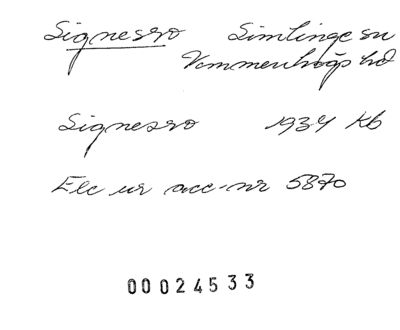 Signesro Simlinge sn
Vemmenhögs hd
Signesro 1934 Kb
Exc ur acc-nr 5870
00024533